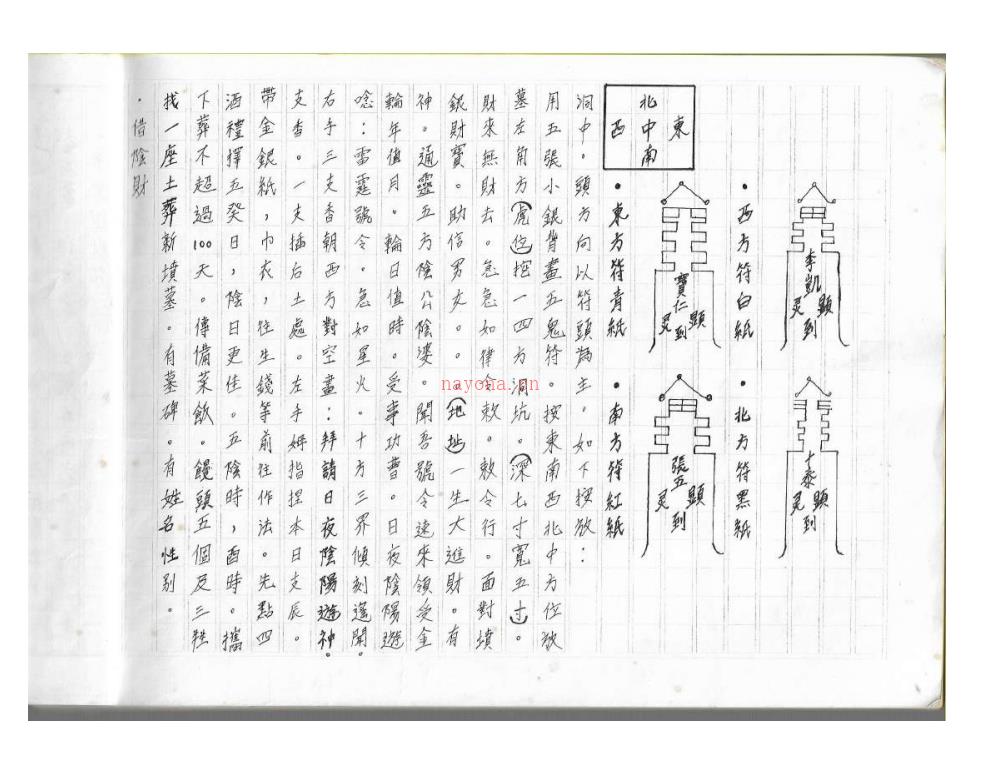 ・借陰財
找一座土葬新墳墓。有墓碑。有姓名性別。
下葬不超過100天。傳備菜飯。饅頭五個及三牲
酒禮擇五癸日，陰日更佳。五陰時，酉時。攜
帶金銀紙，巾衣，往生錢等前往作法。先點四
支香。一支插后土處。左手姆指捏本日支辰。
右手三支香朝西方對空畫：拜請日夜陰陽遊神。
唸：雷霆號令。急如星火。十方三界傾刻遙聞。
輪年值月。輪日值時。受事功曹。日夜陰陽遊
神。通靈五方陰公陰婆。聞吾號令速來領受金
銀財寶。助信男女。（地址）一生大進財。有
財來無財去。急急如律令敕。敕令行。面對墳
墓左角方（虎位）挖一四方洞坑。（深七寸寬五寸）。
用五張小銀背畫五鬼符。按東南西北中方位放
洞中。頭方向以符頭為主。如下按放：
東
北中南
西
・東方符青紙
寶仁
灵到顯
・南方符紅紙
張五
灵到顯
・西方符白紙
李凱
灵到顯
・北方符黑紙
泰
灵到顯
nayona.cn